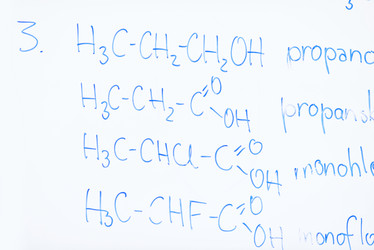 3
3. H₃C-CH₂-CH₂OH propano
H₃C-CH₂-C=O-OH propansk
H₃C-CHCl-C=O-OH monohlo
H₃C-CHF-C=O-OH monoflo